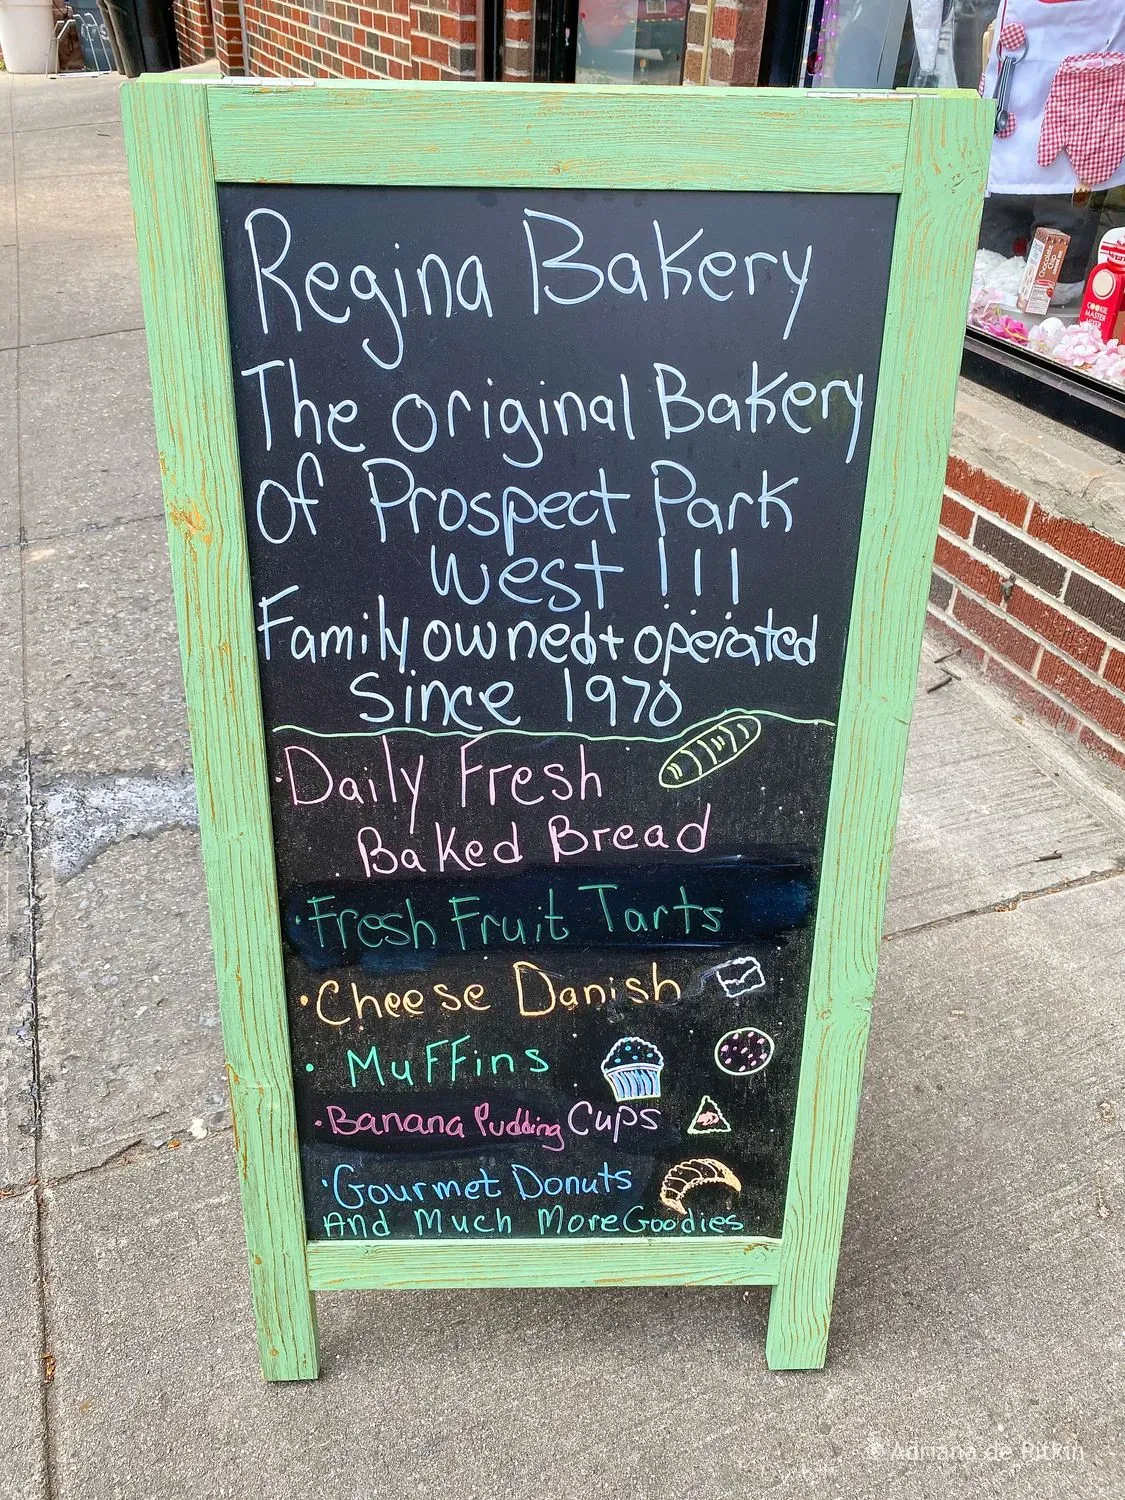 Regina Bakery
The original Bakery
of Prospect Park
West !!!
Family owned + operated
Since 1970
· Daily Fresh
Baked Bread
· Fresh Fruit Tarts
· Cheese Danish
· Muffins
· Banana Pudding Cups
· Gourmet Donuts
And Much More Goodies
COOKIE
MASTER
© Adriana de Pitkin